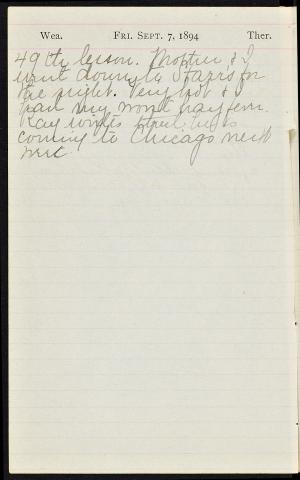 Wea. FRI. SEPT. 7, 1894 Ther.
49th lesson. Mother & I
went down to Starrs for
the night. Very hot & I
had my
Ray writes that he is
coming to Chicago next